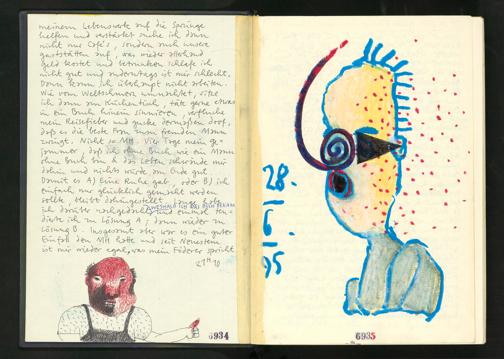 meinem Lebenswerk auf die Sprünge
helfen und verstärkt suche ich dann
nicht nur Cafés, sondern auch unsere
Gaststätten auf, was wieder
Geld kostet und betrunken schlafe ich
nicht gut und anderntags ist mir schlecht.
Dann kann ich überhaupt nicht arbeiten.
Wie vom Weltschmerz umnachtet, sitze
ich dann am Küchentisch, täte gerne etwas
in ein Buch hinein sinnieren, verfluche
mein Reisefieber und gucke dermaßen doof,
daß es die beste Frau zum fremden Mann
zwingt. Nicht so MH. Vier Tage mein
jammert, daß ich ein Buch wie ein Mann
ohne Buch bin & das Leben schwände mir
dahin und nichts würde am Ende gut
Damit es A) Eine Ruhe gab, oder B) ich
einfach nur glücklich gemacht werden
sollte, bleibt dahingestellt.
ich darüber nachgedacht und einmal
ich zu Lösung A; dann wieder zu
Lösung B. Insgesamt aber war es ein guter
Einfall den MH hatte und seit Neuestem
ist mir wieder egal, was mein Föderer spricht
6934
28.
6
95
6935